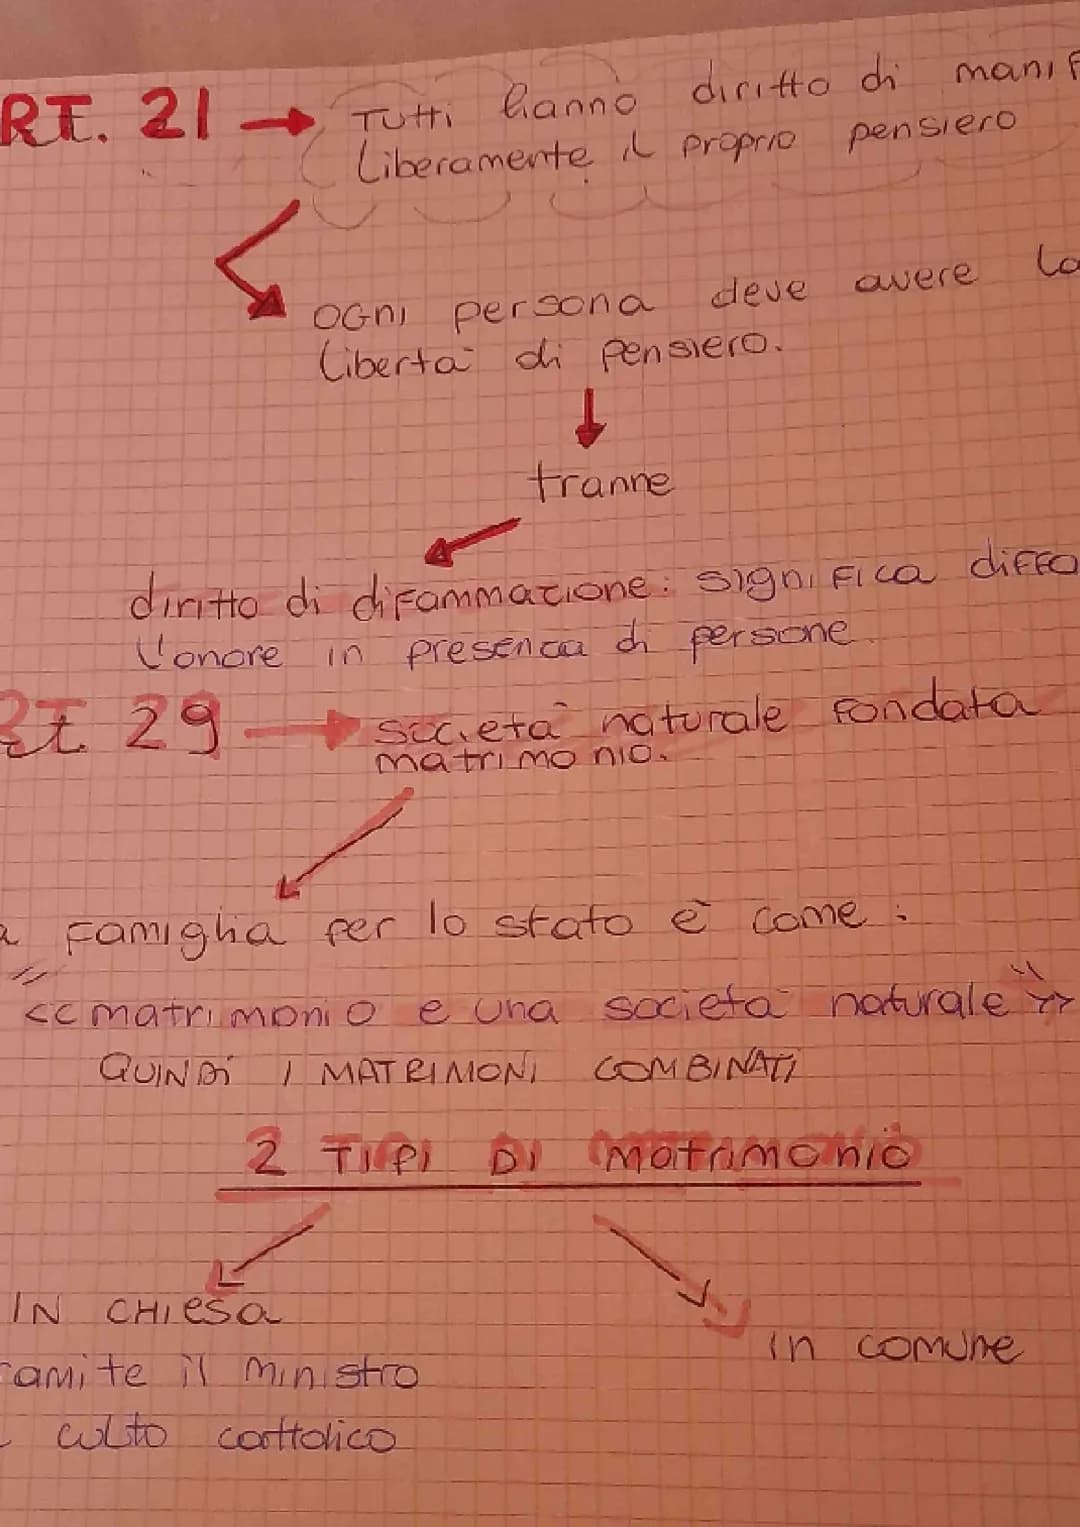 RT. 21 → Tutti hanno diritto di manif
liberamente il proprio pensiero
OGNI persona deve avere la
libertà di pensiero.
tranne
diritto di diffammazione: significa diffa
l'onore in presenza di persone
RT. 29 → società naturale fondata
matrimonio.
a famiglia per lo stato è come :
<<matrimonio e una società naturale>>
QUINDI I MATRIMONI COMBINATI
2 TIPI DI Matrimonio
IN CHIESA
in comune
ramite il ministro
culto cattolico